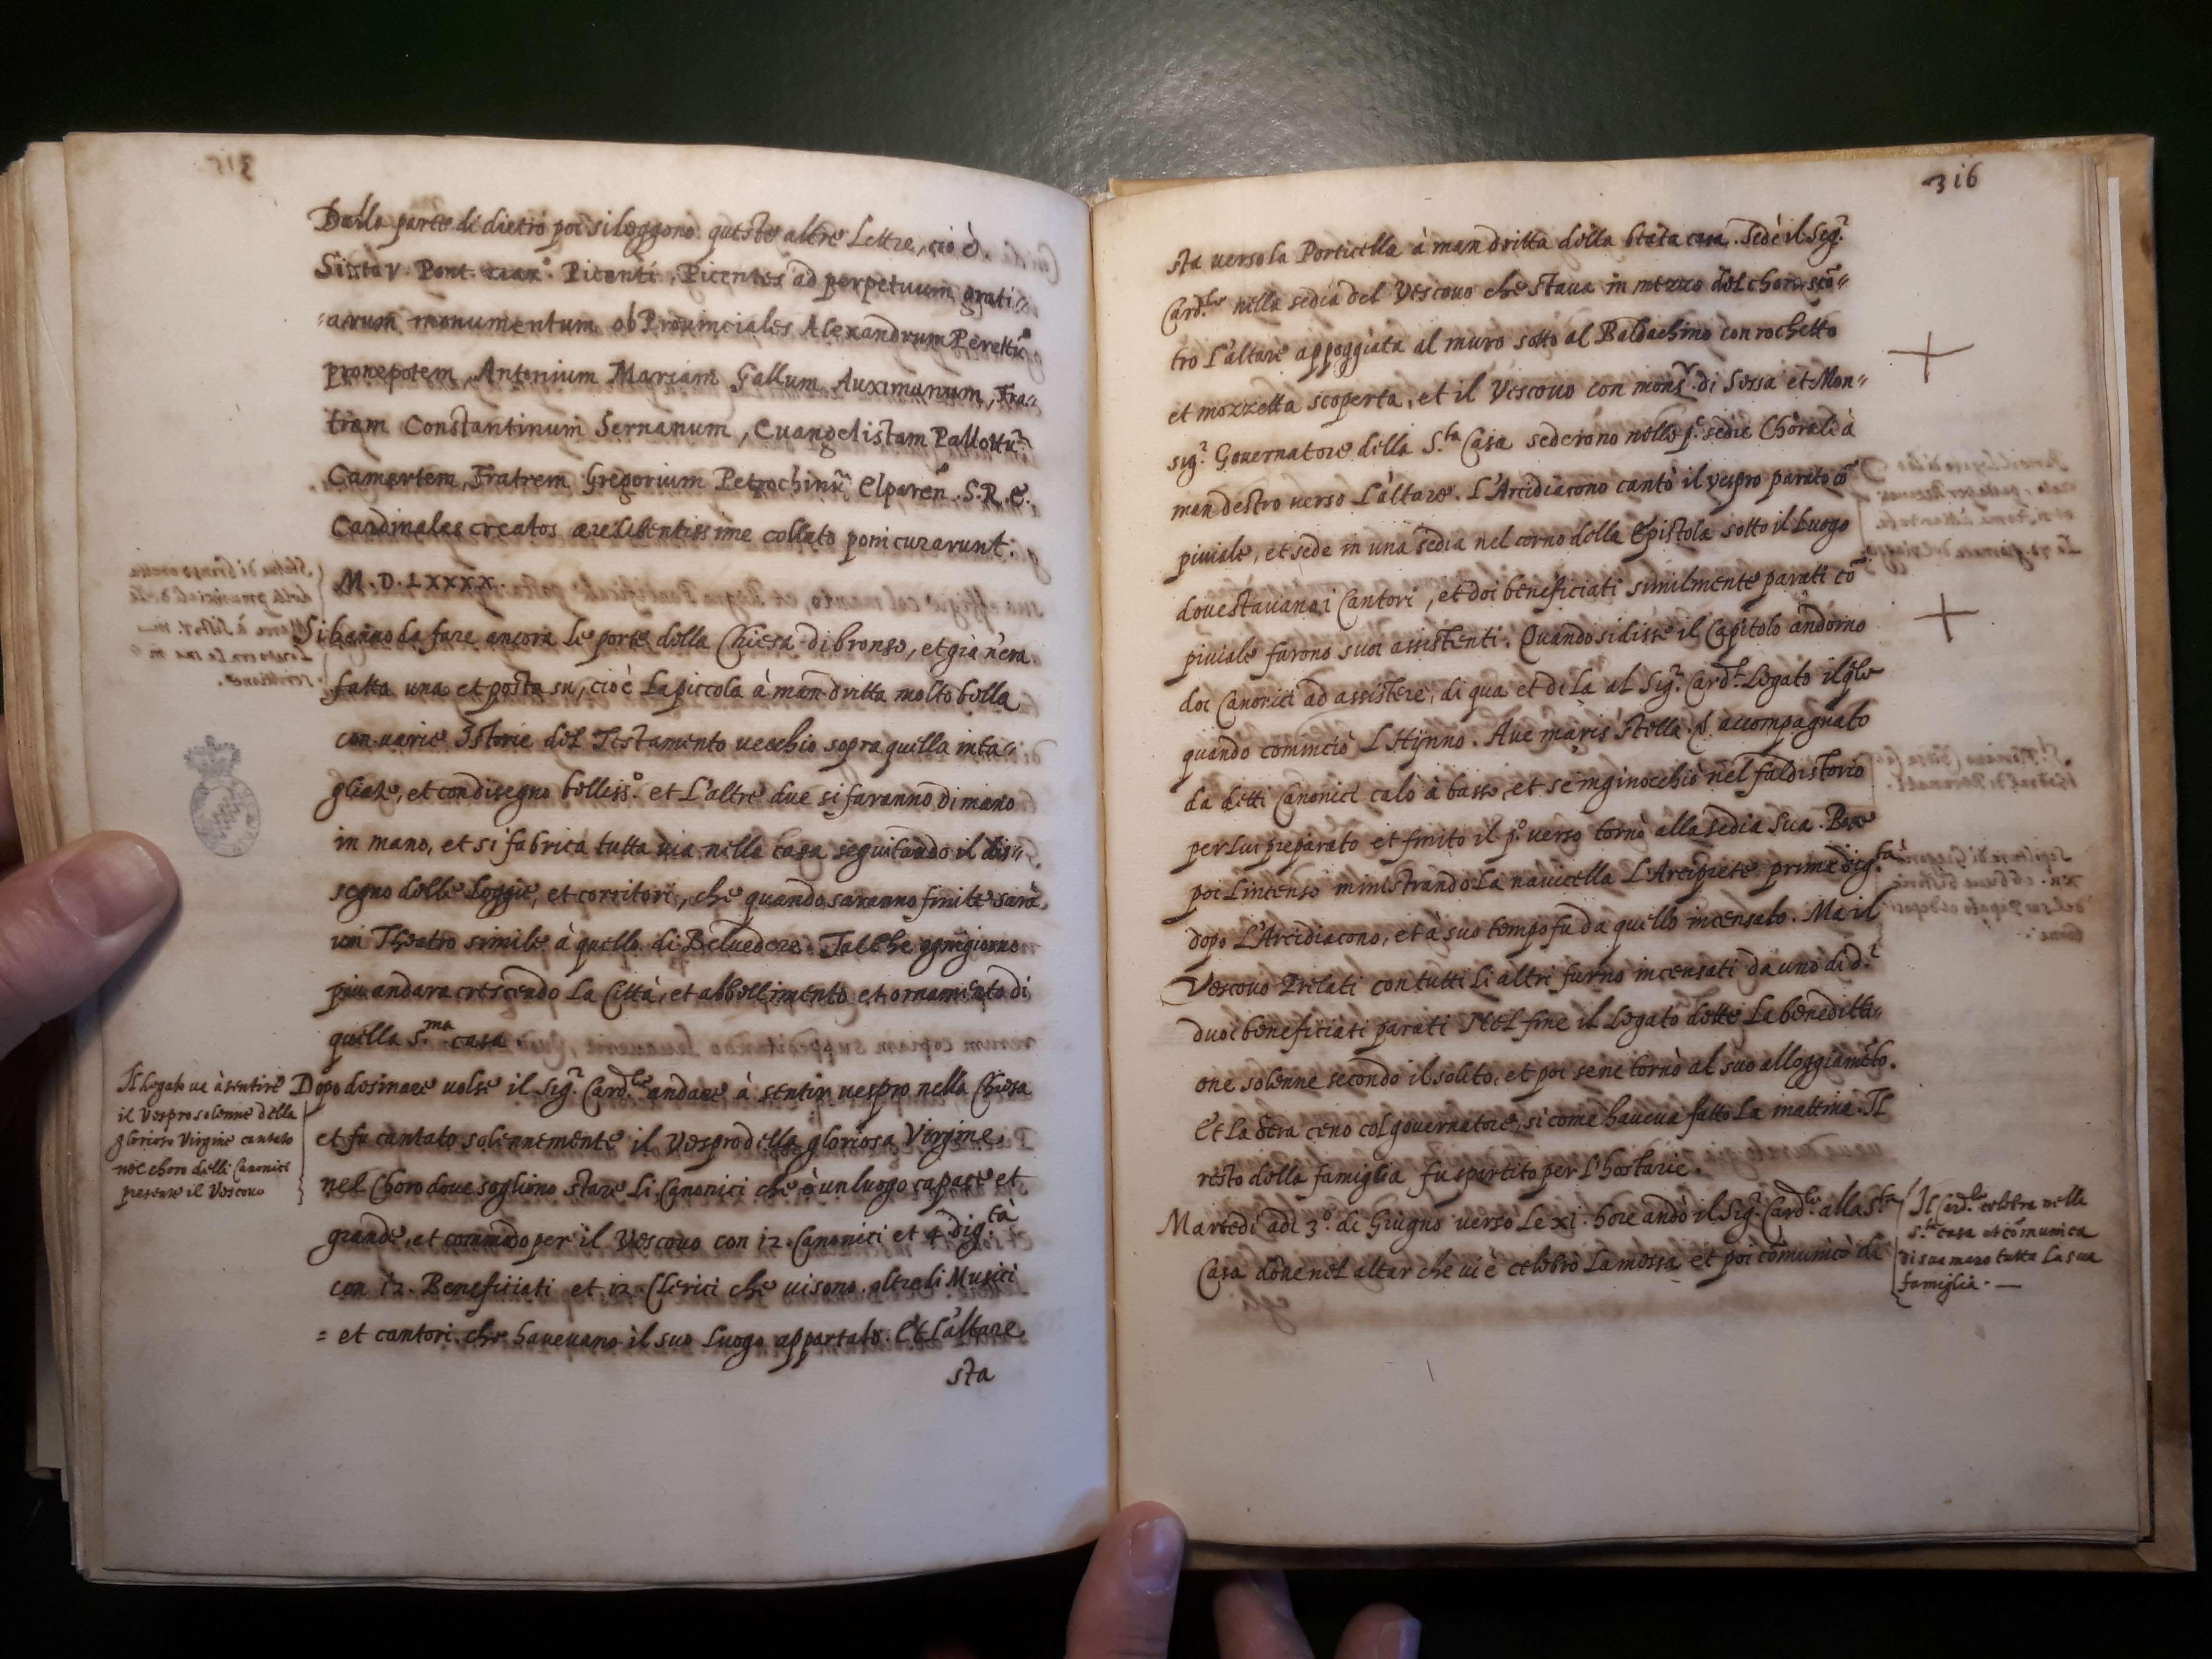 Dalla parte di dietro poi si leggono queste altre Lettre, cio è
Sixto V. Pont. max.º Picenti, Picentes ad perpetuum grati„
„arum monumentum ob Prouinciales Alexandrum Perettū
pronepotem, Antonium Mariam Gallum Auximanum, Fra„
trem Constantinum Sernanum, Euangelistam Pallottū
Camertem, Fratrem Gregorium Petrochinū Elparen̄. S.R.E.
Cardinales creatos ære libentissime collato poni curarunt.
M.D.LXXXX.
Si hanno da fare ancora le porte della Chiesa di bronso, et già n'era
fatta una et posta su, cio è La piccola à man dritta molto bella
con uarie Istorie del Testamento uecchio sopra quella inta„
gliate, et con disegno belliss.º et L'altre due si faranno di mano
in mano, et si fabrica tutta uia nella casa seguitando il dis„
segno delle Loggie, et corritori, che quando saranno finite sarà
un Theatro simile à quello di Beluedere. Talche ogni giorno
piu andara crescendo La Città, et abbellimento et ornamento di
quella S.ma casa.
Il Legato ua à sentire
il Vespro solenne della
gloriosa Virgine cantato
nel choro delli Canonici
presente il Vescouo
Dopo desinare uolse il Sig.r Card.le andare à sentir uespro nella Chiesa
et fu cantato solennemente il Vespro della gloriosa Virgine,
nel Choro doue sogliono stare Li Canonici che è un luogo capace et
grande, et commodo per il Vescouo con 12. Canonici et 4 dig.tà
con 12. Benefitiati et 12. Clerici che ui sono. oltre li Musici
= et cantori. che haueuano il suo Luogo appartato. Et L'altare
sta
316
sta uerso la Porticella à man dritta della beata casa. Sedè il Sig.r
Card.le nella sedia del Vescouo che staua in mezzo del choro, icō„
tro L'altare appoggiata al muro sotto al Baldachino con rochetto
et mozzetta scoperta, et il Vescouo con mons.r di Sessa et Mon„
sig.r Gouernatore della S.ta Casa sederono nelle p.e sedie Chorali à
man destro uerso L'altare. L'Arcidiacono cantò il uespro parato cō
piuiale, et sede in una sedia nel corno della Epistola sotto il Luogo
doue stauano i Cantori, et doi beneficiati similmente parati cō
piuiale furono suoi assistenti. Quando si disse il Capitolo andorno
doi Canonici ad assistere, di qua et di La al Sig.r Card.l Legato il q̄le
quando cominciò L'Hÿnno. Aue maris stella. accompagnato
da detti Canonici calò à basso, et se inginocchiò nel faldistorio
per Lui preparato et finito il p.º uerso tornò alla sedia sua. Pose
poi L'incenso ministrando La nauicella L'Arciprete prima dig.tà
dopo L'Arcidiacono, et à suo tempo fu da quello incensato. Ma il
Vescouo Prelati con tutti li altri furno incensati da uno di d.i
duoi beneficiati parati. Nel fine il Legato dette La benedetti„
one solenne secondo il solito, et poi se ne tornò al suo alloggiamēto.
Et La sera ceno col gouernatore, si come haueua fatto La mattina. Il
resto della famiglia fu spartito per l'hostarie.
Martedì adi 3º. di Giugno uerso Le xi. hore andò il Sig.r Card.le alla S.ta
Casa doue nel altar che ui è celebrò La messa et poi cōmunicò di
Il Card.le celebra nella
S.ta casa et cōmunica
di sua mano tutta La sua
famiglia. —